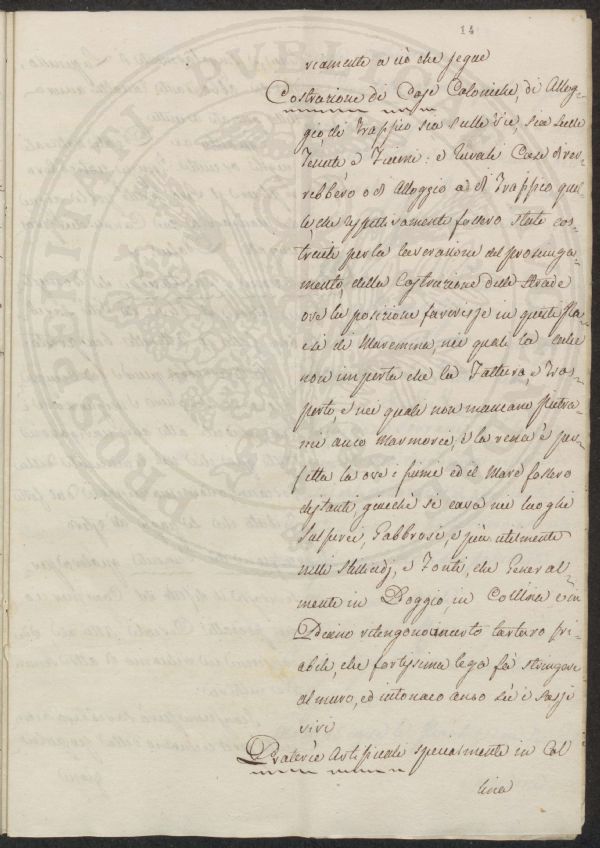 14
riamente a ciò che segue
Costruzione di Case Coloniche, di Allog=
gio, di Trappio sia sulle Vie, sia nelle
Tenute e : e Rurali Case
rebbero o di Alloggio a di Trappio quel=
le che rispettivamente fossero state cos=
truite per la lavorazione del prosciuga=
mento, della Costruzione delle Strade
ove la posizione favorisse in queste
di Maremma, nei quali la calce
non importa che la Fattura, e tras=
porto, e nei quali non mancano pietra=
mi anco Marmorei, e la rena è per=
fetta la ove i fiumi ed il Mare fossero
distanti, giacchè si cava nei luoghi
Sulfurei, Gabbrosi, e più utilmente
nelli Stillicidj, e Fonti, che General=
mente in Poggio, in Collina e in
ritengono incerto tartaro fri=
abile, che fortissima lega fà stringare
al muro, ed intonaco anco se è Sassi
vivi
Praterie Artificiali specialmente in Col
lina
PROSPERITATI PVBLICAE